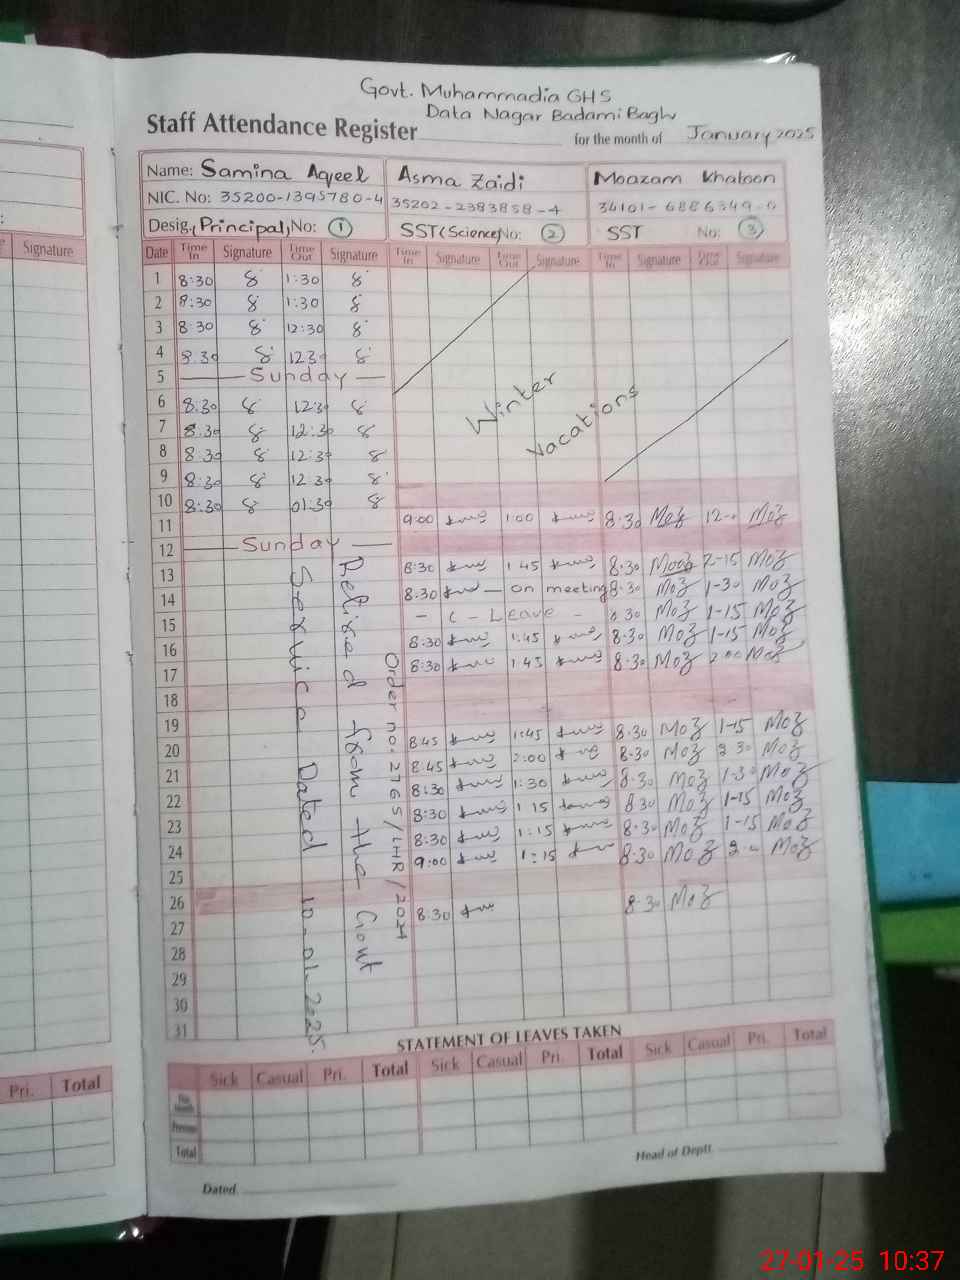 Govt. Muhammadia GHS
Data Nagar Badami Bagh
Staff Attendance Register for the month of January 2025
Name: Samina Aqeel Asma Zaidi Moazam Khatoon
NIC. No: 35200-1395780-4 35202-2383858-4 34101-6886349-0
Desig. (Principal) No: 1 SST (Science) No: 2 SST No: 3
Signature
Date Time In Signature Time Out Signature Time In Signature Time Out Signature Time In Signature Time Out Signature
1 8:30 8 1:30 8
2 8:30 8 1:30 8
3 8:30 8 12:30 8
4 8.30 8 12 30 8
5 Sunday
6 8:30 8 12:30 8
7 8.30 8 12:30 8
8 8:30 8 12:30 8
9 8:30 8 12 30 8
10 8:30 8 01:30 8
Winter
Vacations
11 9:00 1:00 8:30 Moz 12-0 Moz
12 Sunday
13 8:30 1 45 8:30 Moz 2-15 Moz
14 8.30 on meeting 8.30 Moz 1-30 Moz
15 - C - Leave - 8 30 Moz 1-15 Moz
16 8:30 1:45 8:30 Moz 1-15 Moz
17 8:30 1 45 8:30 Moz 2-00 Moz
18
19
20 8:45 1:45 8.30 Moz 1-15 Moz
21 8:45 2:00 8:30 Moz 2 30 Moz
22 8:30 1:30 8:30 Moz 1-30 Moz
23 8:30 1 15 8 30 Moz 1-15 Moz
24 8:30 1:15 8:30 Moz 1-15 Moz
25 9:00 1:15 8:30 Moz 2-0 Moz
26
27 8:30 8:30 Moz
28
29
30
31
Relived from the Govt
Service Dated 10-01-2025.
Order no. 2765/LHR/2024
STATEMENT OF LEAVES TAKEN
Sick Casual Pri. Total Sick Casual Pri. Total Sick Casual Pri. Total
Pri. Total
Previous
Total
Head of Deptt.
Dated
27-01-25 10:37